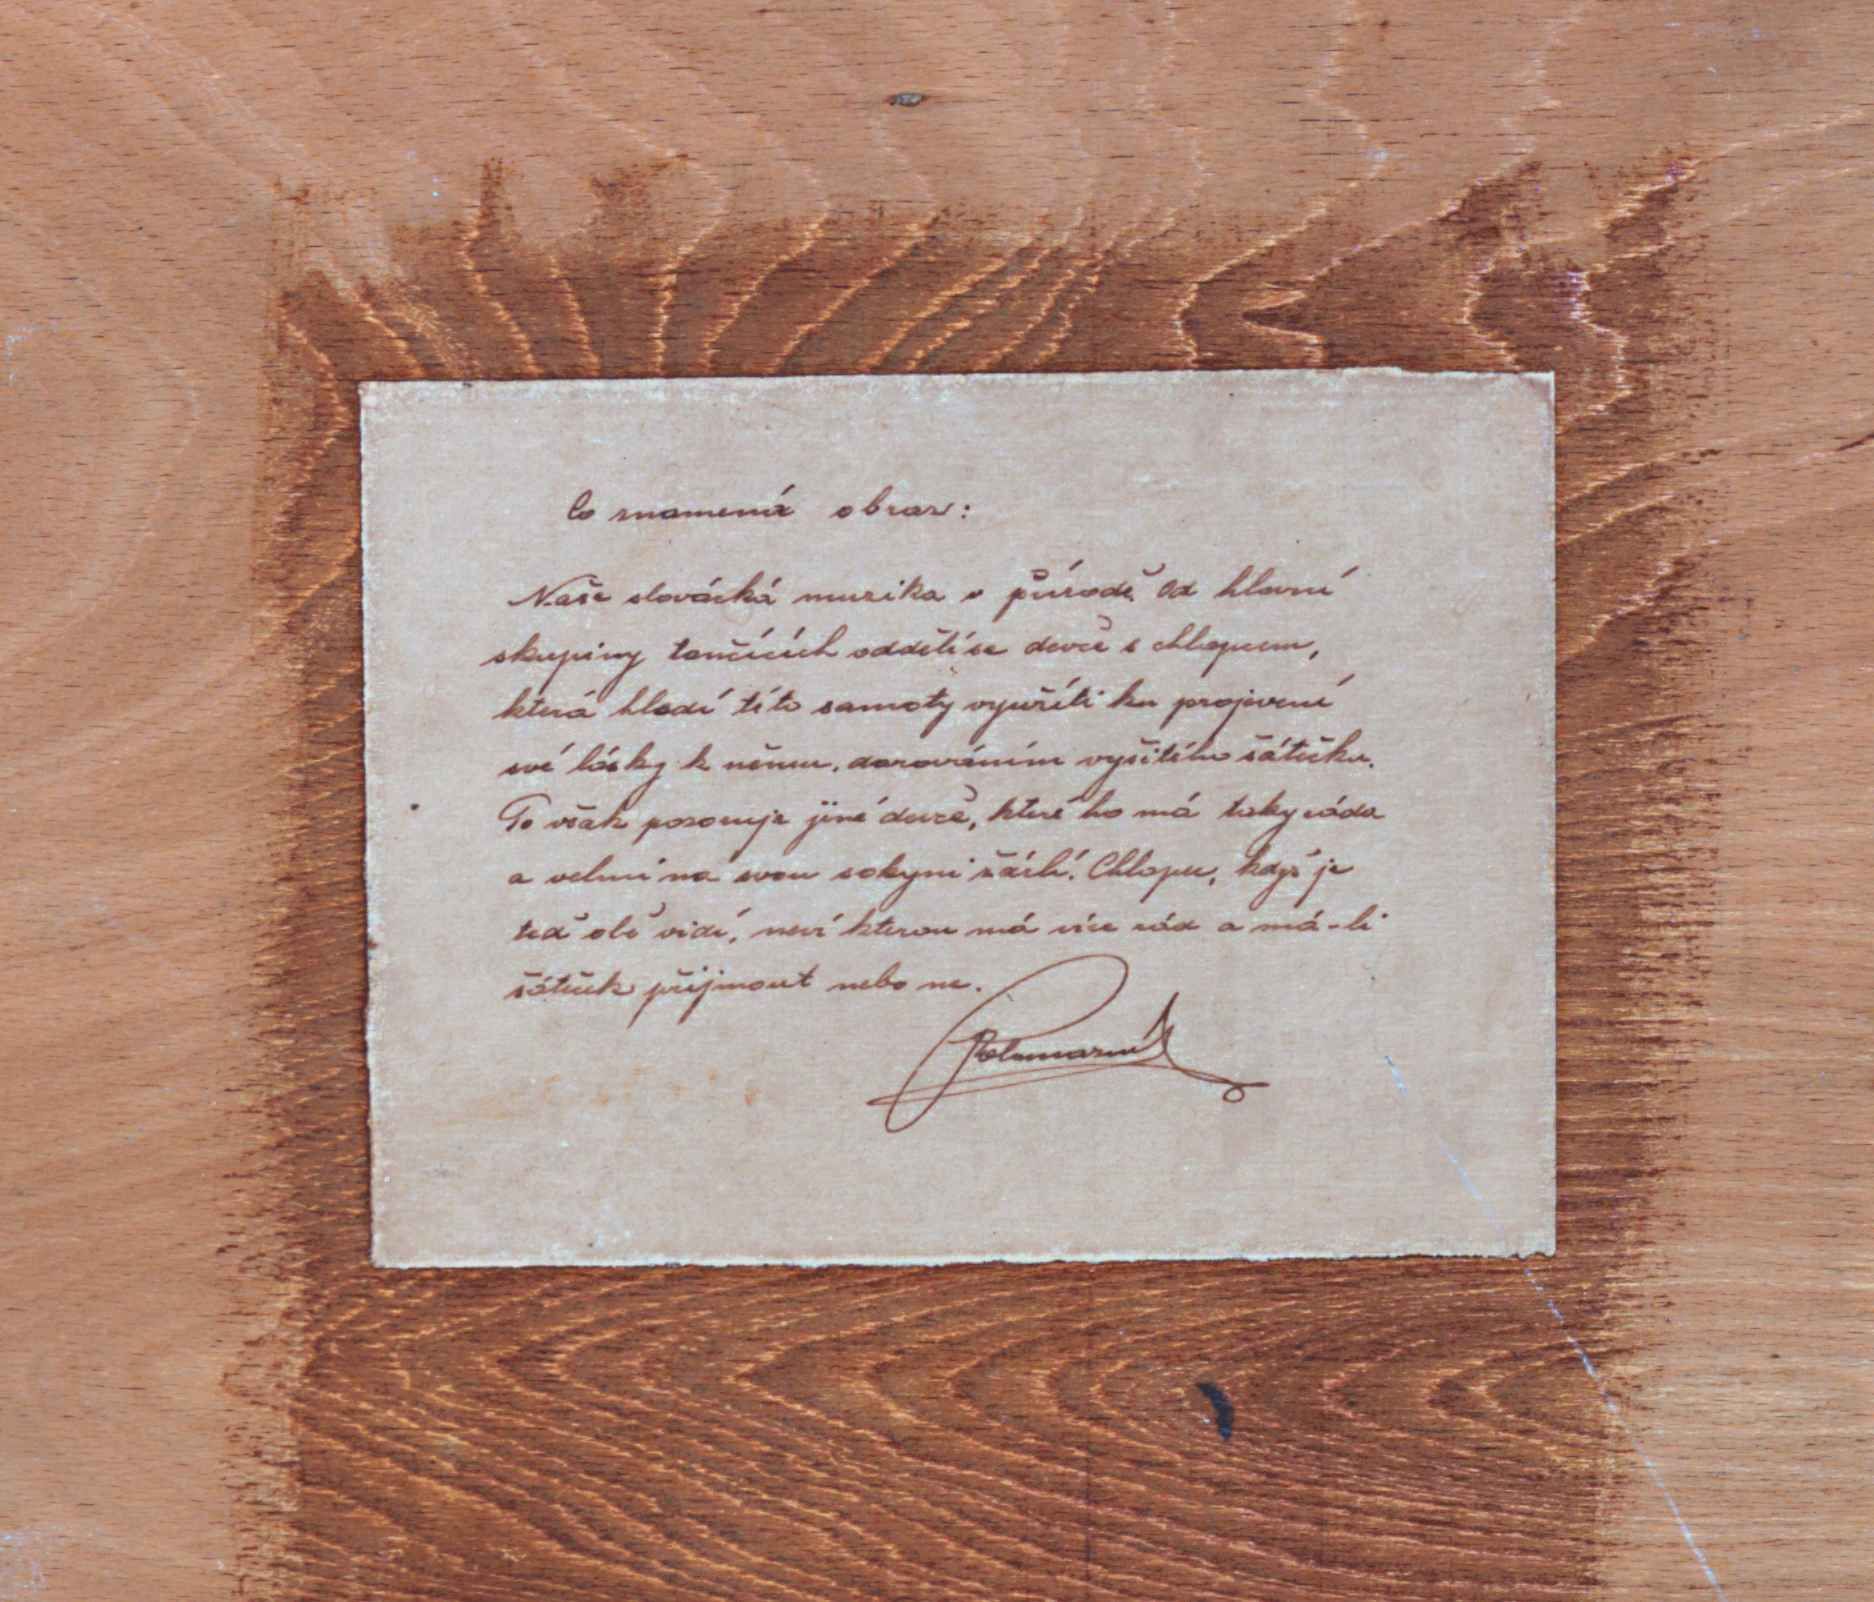 Co znamená obraz:
Naše slovácká muzika v přírodě. Od hlavní
skupiny tančících oddělí se devče s chlapcem,
která hledí této samoty využíti ku projevení
své lásky k němu, darováním vyšitého šátečku.
To však pozoruje jiné devče, které ho má taky ráda
a velmi na svou sokyni žárlí. Chlapec, když je
teď obě vidí, neví kterou má více rád a má-li
šáteček přijmout nebo ne.